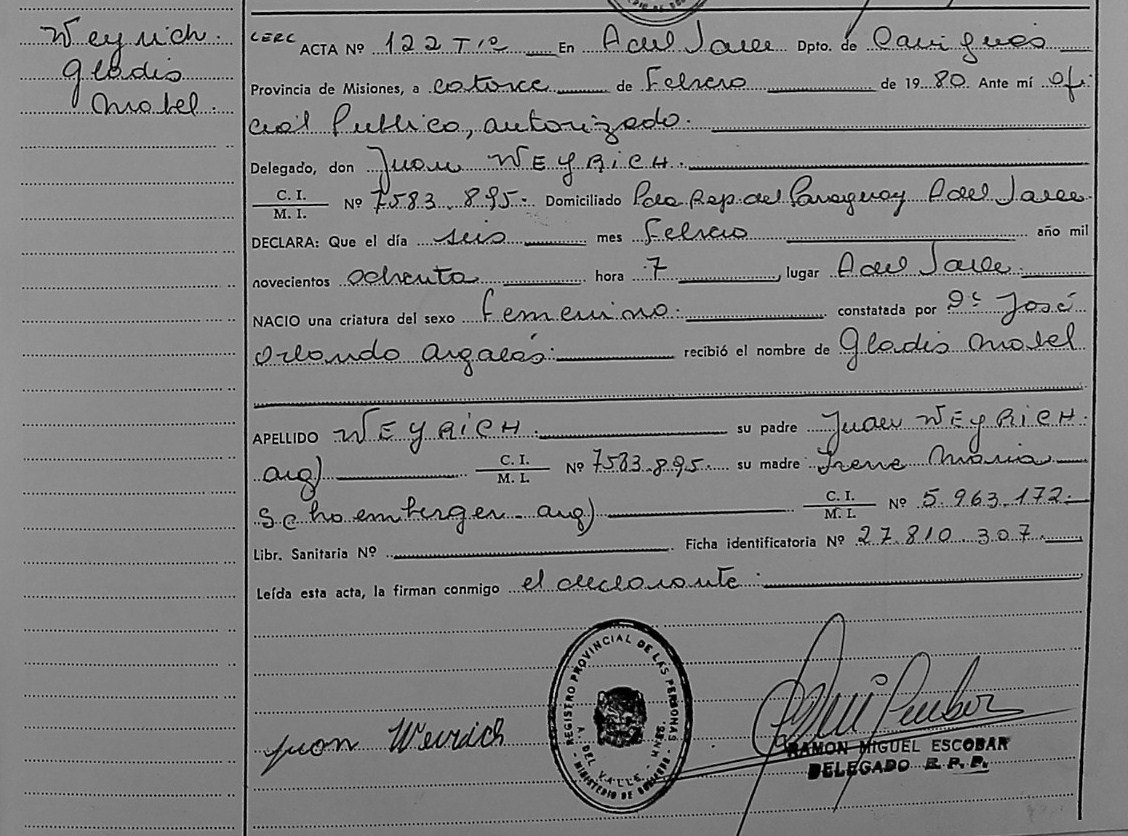 Weyrich.
Gladis
Mabel.
ACTA Nº 122 Tº En A del Valle Dpto. de Cainguás
Provincia de Misiones, a catorce de Febrero de 19 80 Ante mí Ofi
cial Publico, autorizado.
Delegado, don Juan WEYRICH.
C. I.
M. I. Nº 7583.895. Domiciliado Pdo Rep. del Paraguay A del Valle
DECLARA: Que el día seis mes Febrero año mil
novecientos ochenta hora 7, lugar A del Valle.
NACIO una criatura del sexo femenino. constatada por José
Orlando recibió el nombre de Gladis Mabel
APELLIDO WEYRICH. su padre Juan WEYRICH.
arg) C. I.
M. I. Nº 7583.895. su madre Irene Maria
Schoemberger - arg) C. I.
M. I. Nº 5.963.172.
Libr. Sanitaria Nº Ficha identificatoria Nº 27.810.307.
Leída esta acta, la firman conmigo el declarante.
REGISTRO PROVINCIAL DE LAS PERSONAS
A. DEL VALLE - MNES.
MINISTERIO DE GOBIERNO
Juan Weirich
RAMON MIGUEL ESCOBAR
DELEGADO R. P. P.